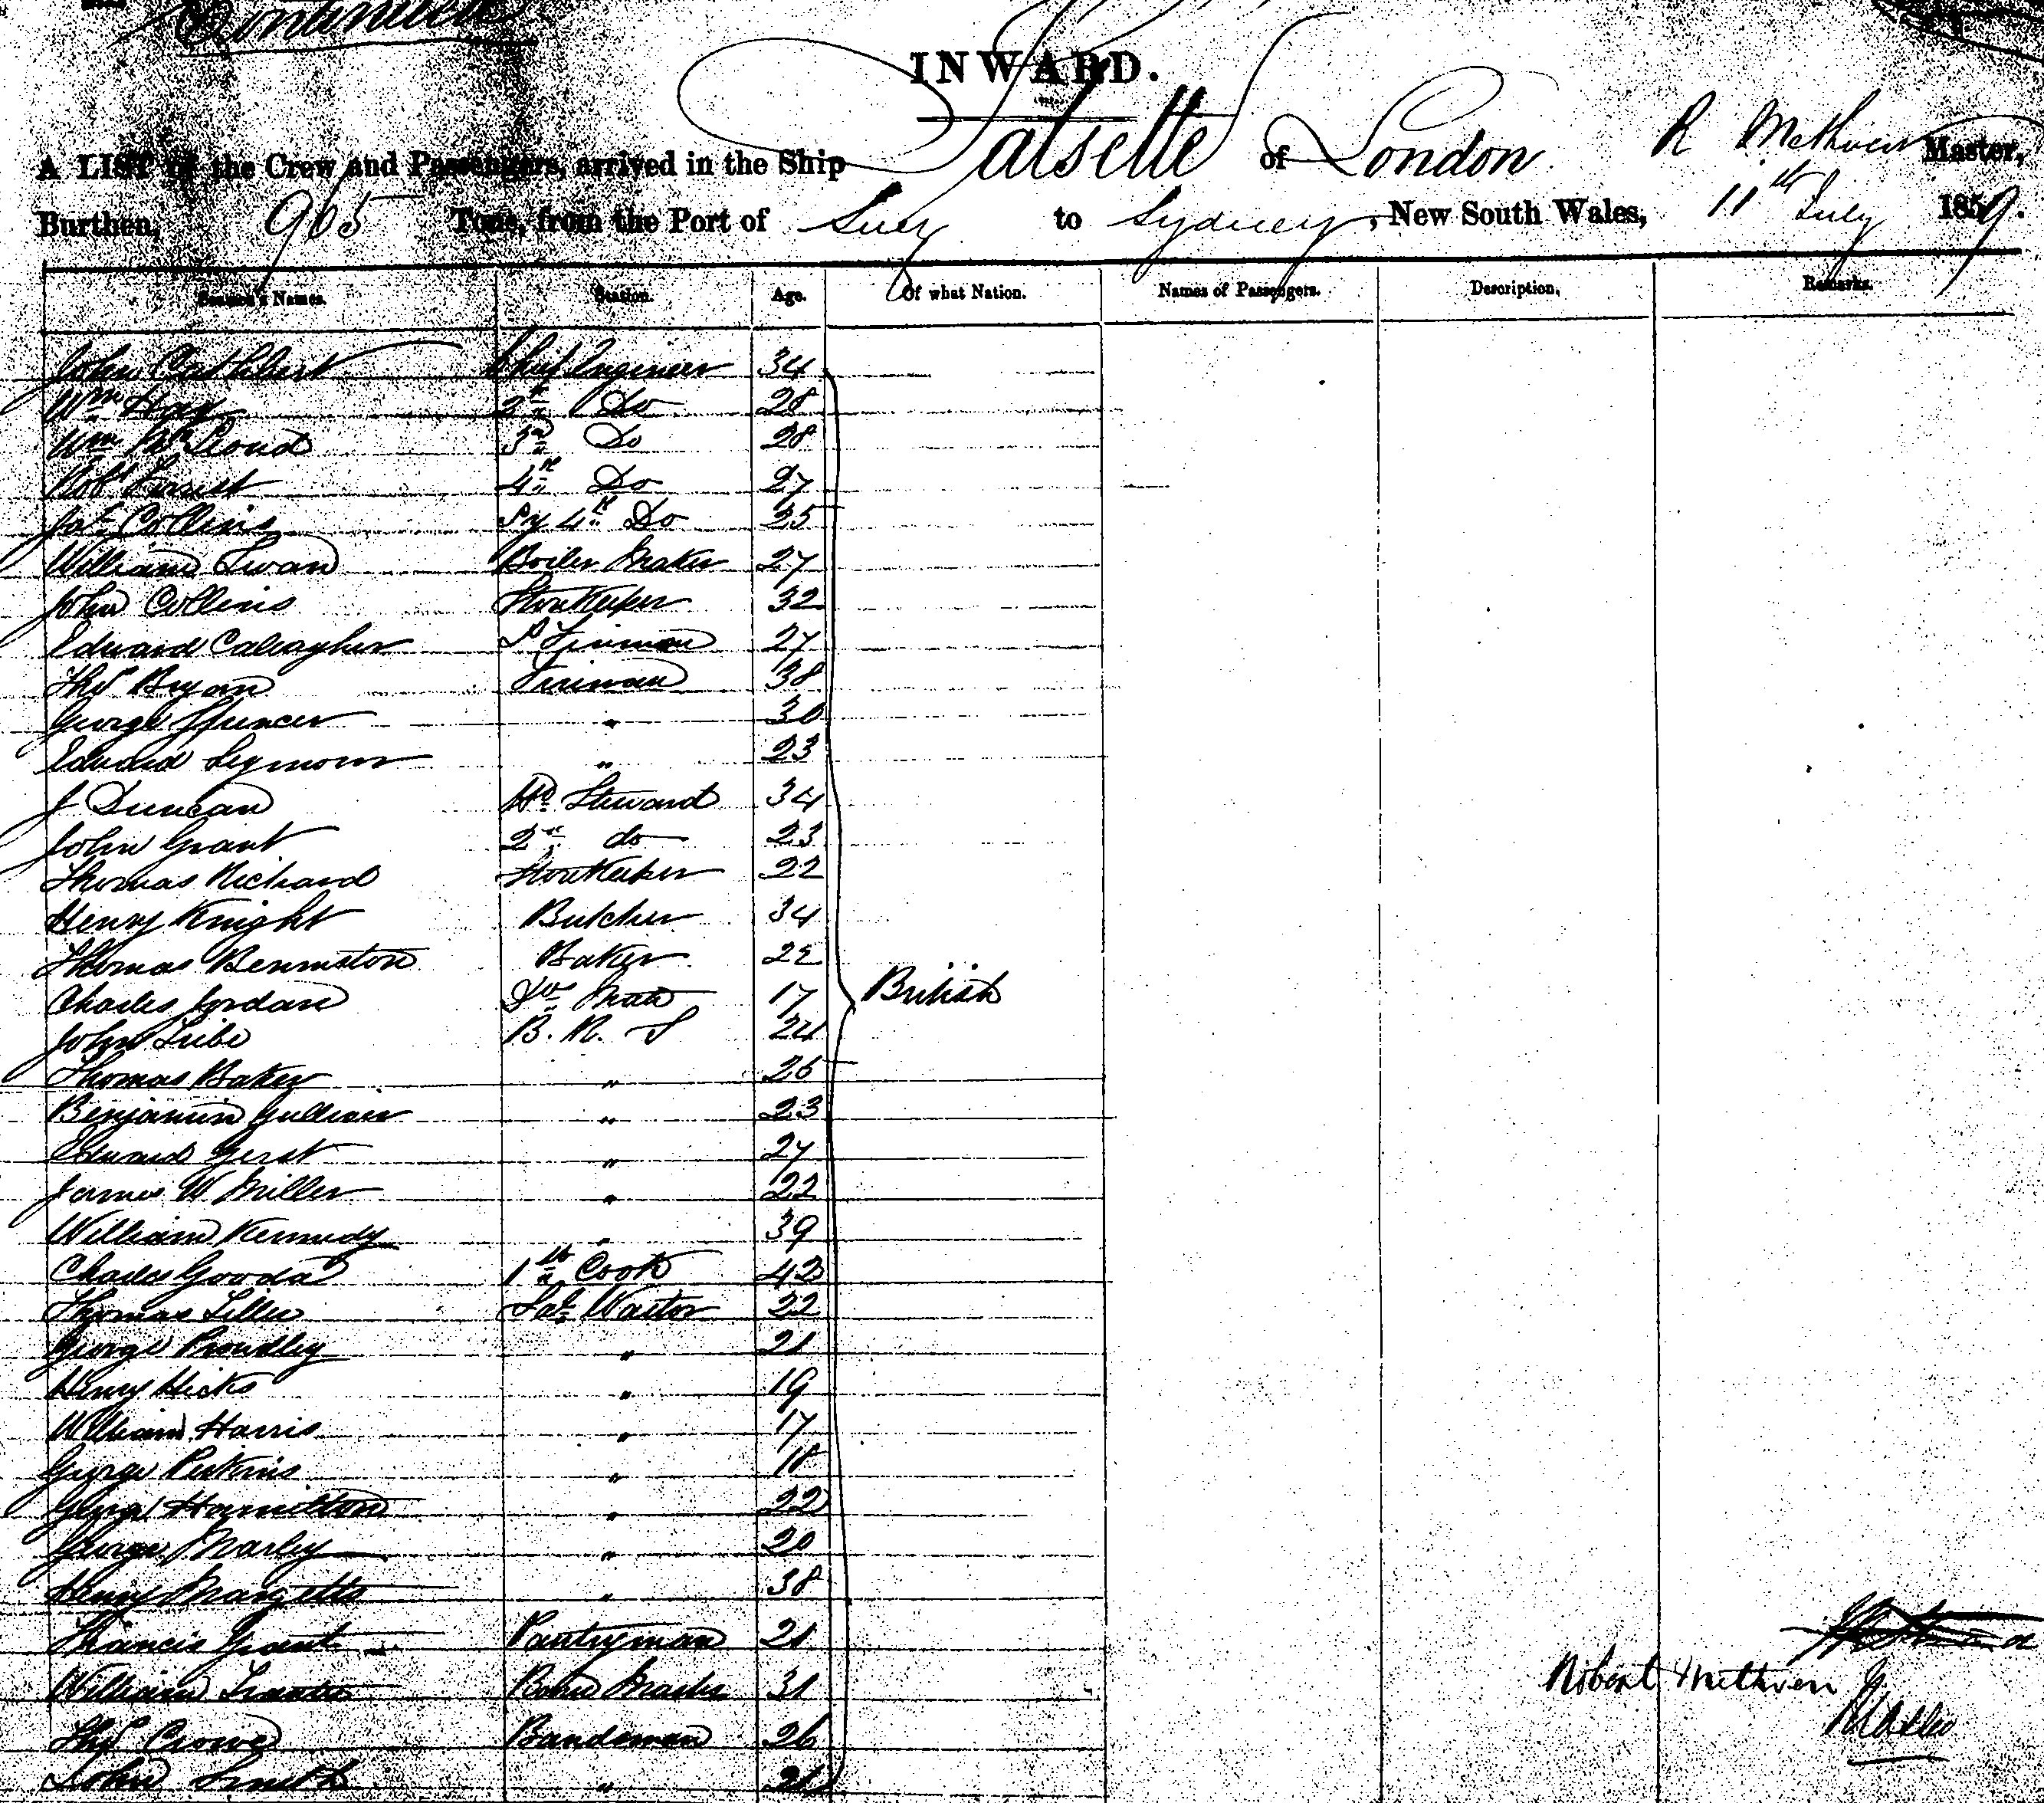 Continued
INWARD.
A LIST of the Crew and Passengers, arrived in the Ship Salsette of London R Methven Master,
Burthen, 905 Tons, from the Port of Suez to Sydney, New South Wales, 11th July 1859.
Seamen's Names. Station. Age. Of what Nation. Names of Passengers. Description. Remarks.
John Cuthbert Chief Engineer 34
Wm Hay 2d Do 28
Wm McCloud 3d Do 28
Robt 4th Do 27
Jas Collins Sy 4th Do 25
William Swan Boiler Maker 27
John Collins Storekeeper 32
Edward Caleagher S Fireman 27
Thos Bryan Fireman 38
George Spencer " 30
Edward Seymour " 23
J Duncan Hd Steward 34
John Grant 2d do 23
Thomas Richard Storekeeper 22
Henry Knight Butcher 34
Thomas Benniston Baker 22
Charles Jordan Do Mate 17 British
John B. R. S 24
Thomas Baker " 26
Benjamin Gulliver " 23
Edward Gerst " 27
James W Miller " 22
William Kennedy " 39
Charles Goodal 1st Cook 42
Thomas Lillie Sal Waitor 22
George Proudley " 21
Henry Hicks " 19
William Harris " 17
George Perkins " 18
George Hamilton " 22
George Marley " 20
Henry Margetts " 38
Francis Grant Pantryman 21
William Band Master 31
Robert Methven
Master
Thos Crowe Bandsman 26
John Smith " 21